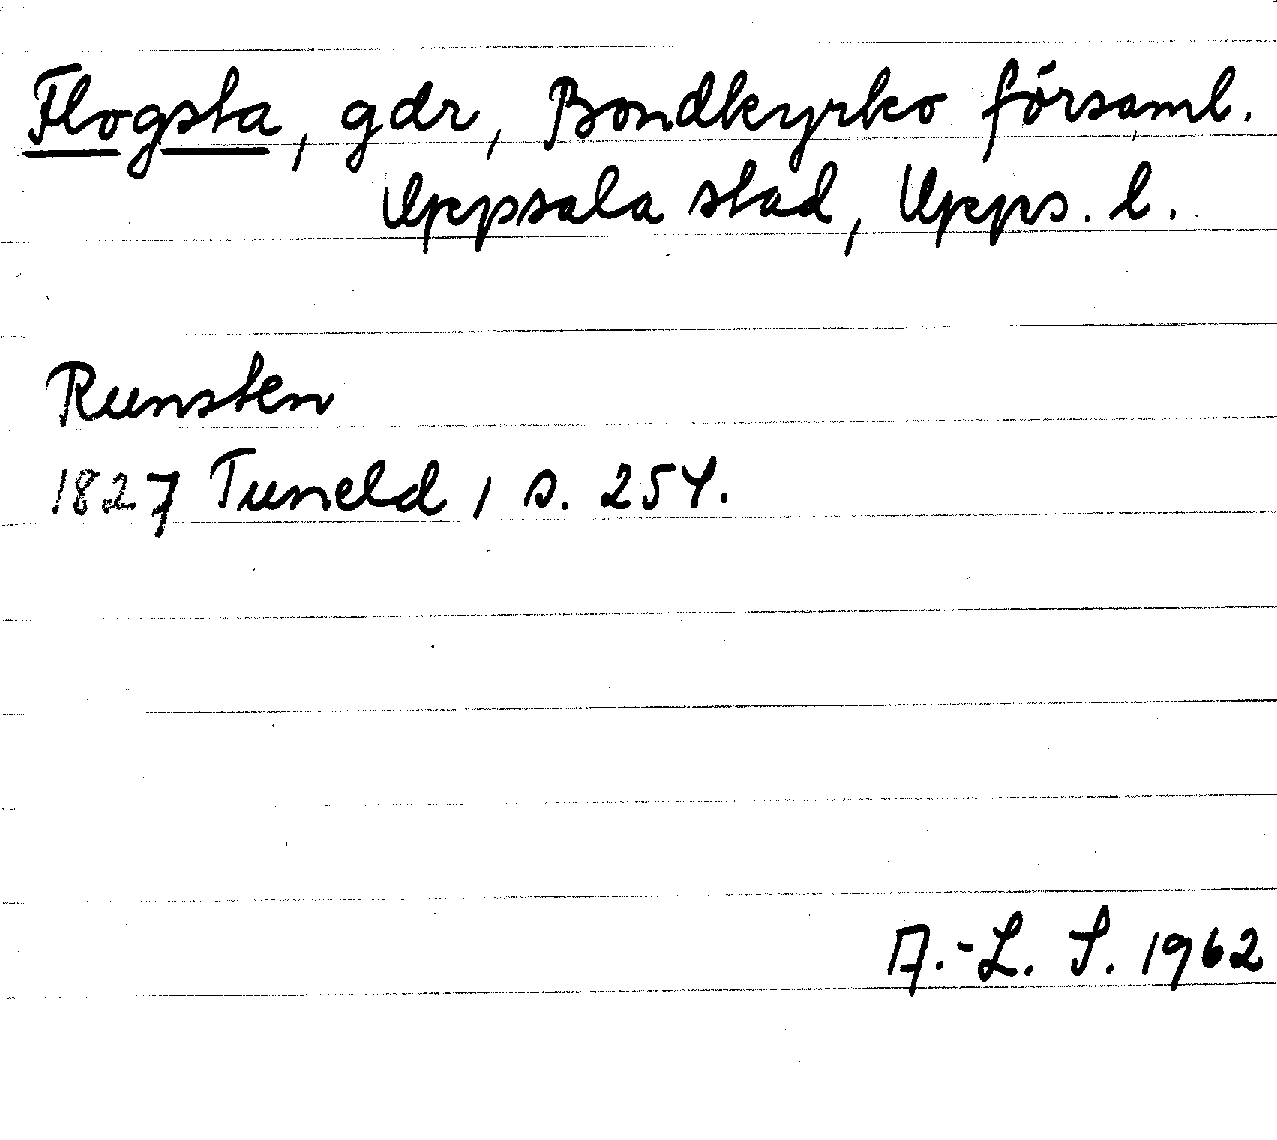 Flogsta, gdr, Bondkyrko församl.
Uppsala stad, Upps. l.
Runsten
1827 Tuneld 1 s. 254.
A.-L. S. 1962